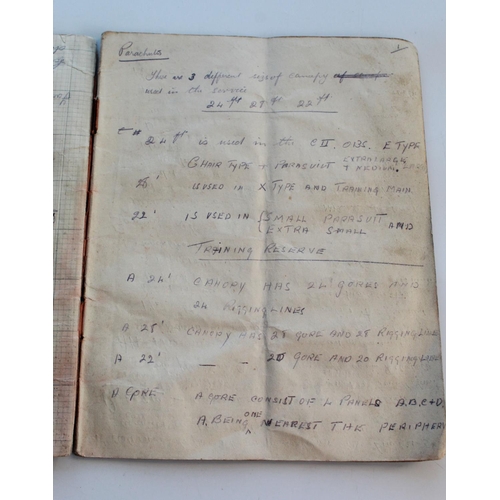 Parachutes 1
Ther is 3 different sizes of canopy
used in the service
24 ft 28 ft 22 ft
24 ft is used in the C II, OBS. E TYPE
CHAIR TYPE + PARASUIT EXTRALARGE + MEDIUM.
28' IS USED IN X TYPE AND TRAINING MAIN.
22' IS USED IN { SMALL PARASUIT AND
EXTRA SMALL
TRAINING RESERVE
A 24' CANOPY HAS 24 GORES AND
24 RIGGING LINES
A 28' CANOPY HAS 28 GORE AND 28 RIGGING LINES
A 22' — — 20 GORE AND 20 RIGGING LINES
A GORE A GORE CONSIST OF 4 PANELS A.B.C+D,
A. BEING ONE NEAREST THE PERIPHERY